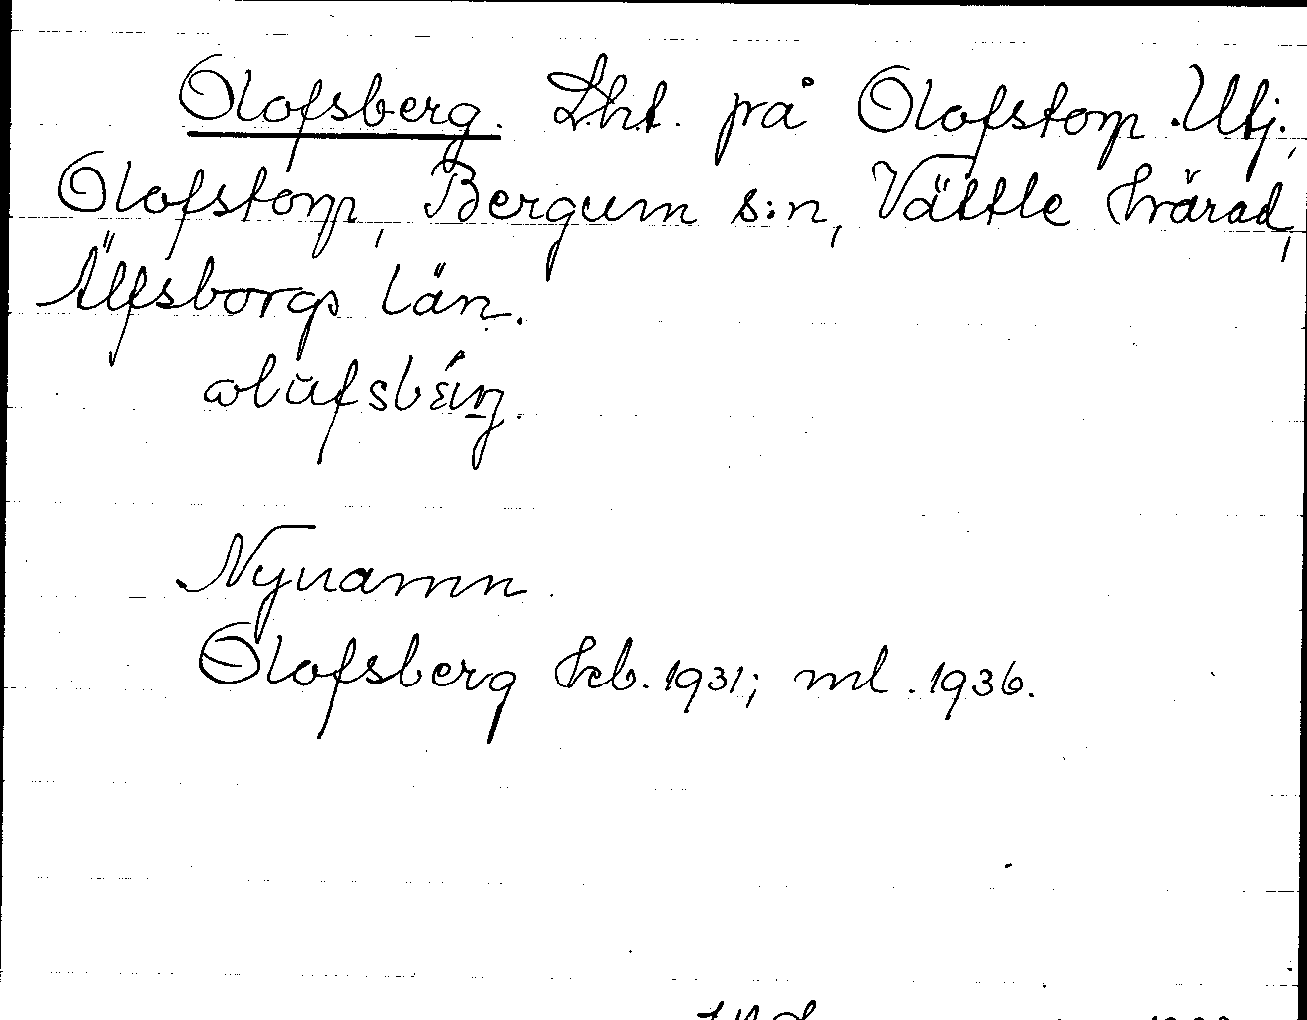 Olofsberg. Lht. på Olofstorp Utj.,
Olofstorp, Bergum s:n, Vättle härad,
Älfsborgs län.
Nynamn.
Olofsberg hcb. 1931; ml. 1936.